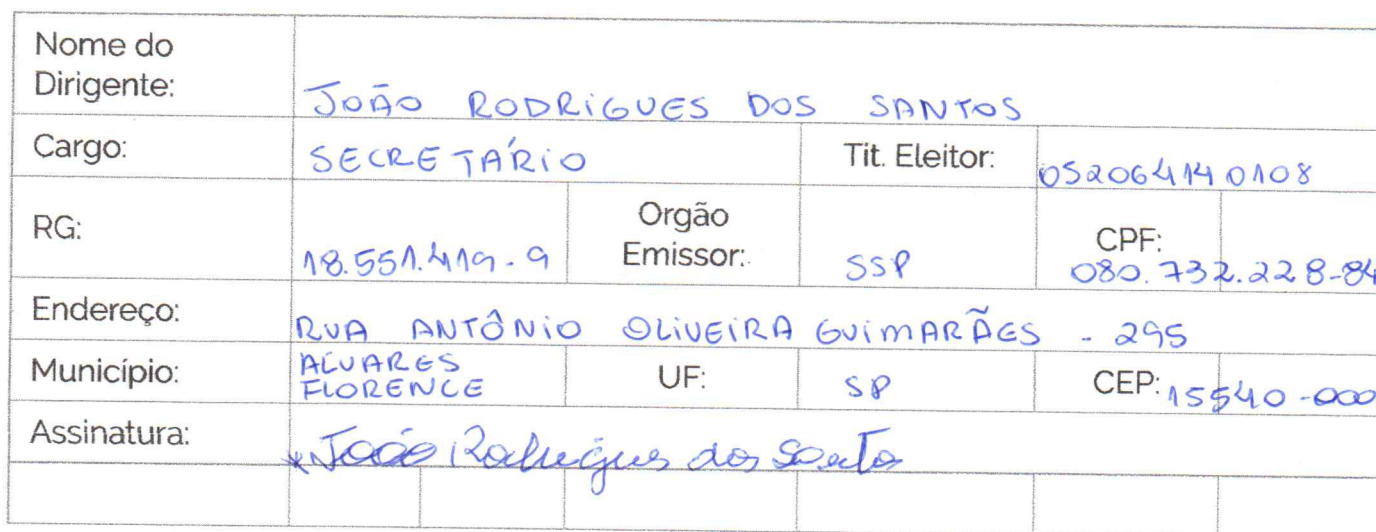 Nome do
Dirigente: JOÃO RODRIGUES DOS SANTOS
Cargo: SECRETÁRIO Tit. Eleitor: 052064140108
RG: 18.551.419-9 Orgão
Emissor: SSP CPF:
080.732.228-84
Endereço: RUA ANTÔNIO OLIVEIRA GUIMARÃES - 295
Município: ALVARES
FLORENCE UF: SP CEP: 15540-000
Assinatura: *João Rodrigues dos Santos